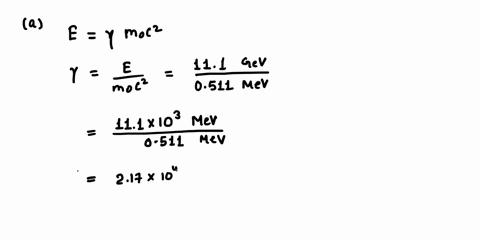 (a) E = γ m₀c²
γ = E / m₀c² = 11.1 GeV / 0.511 MeV
= 11.1 × 10³ MeV / 0.511 MeV
= 2.17 × 10⁴